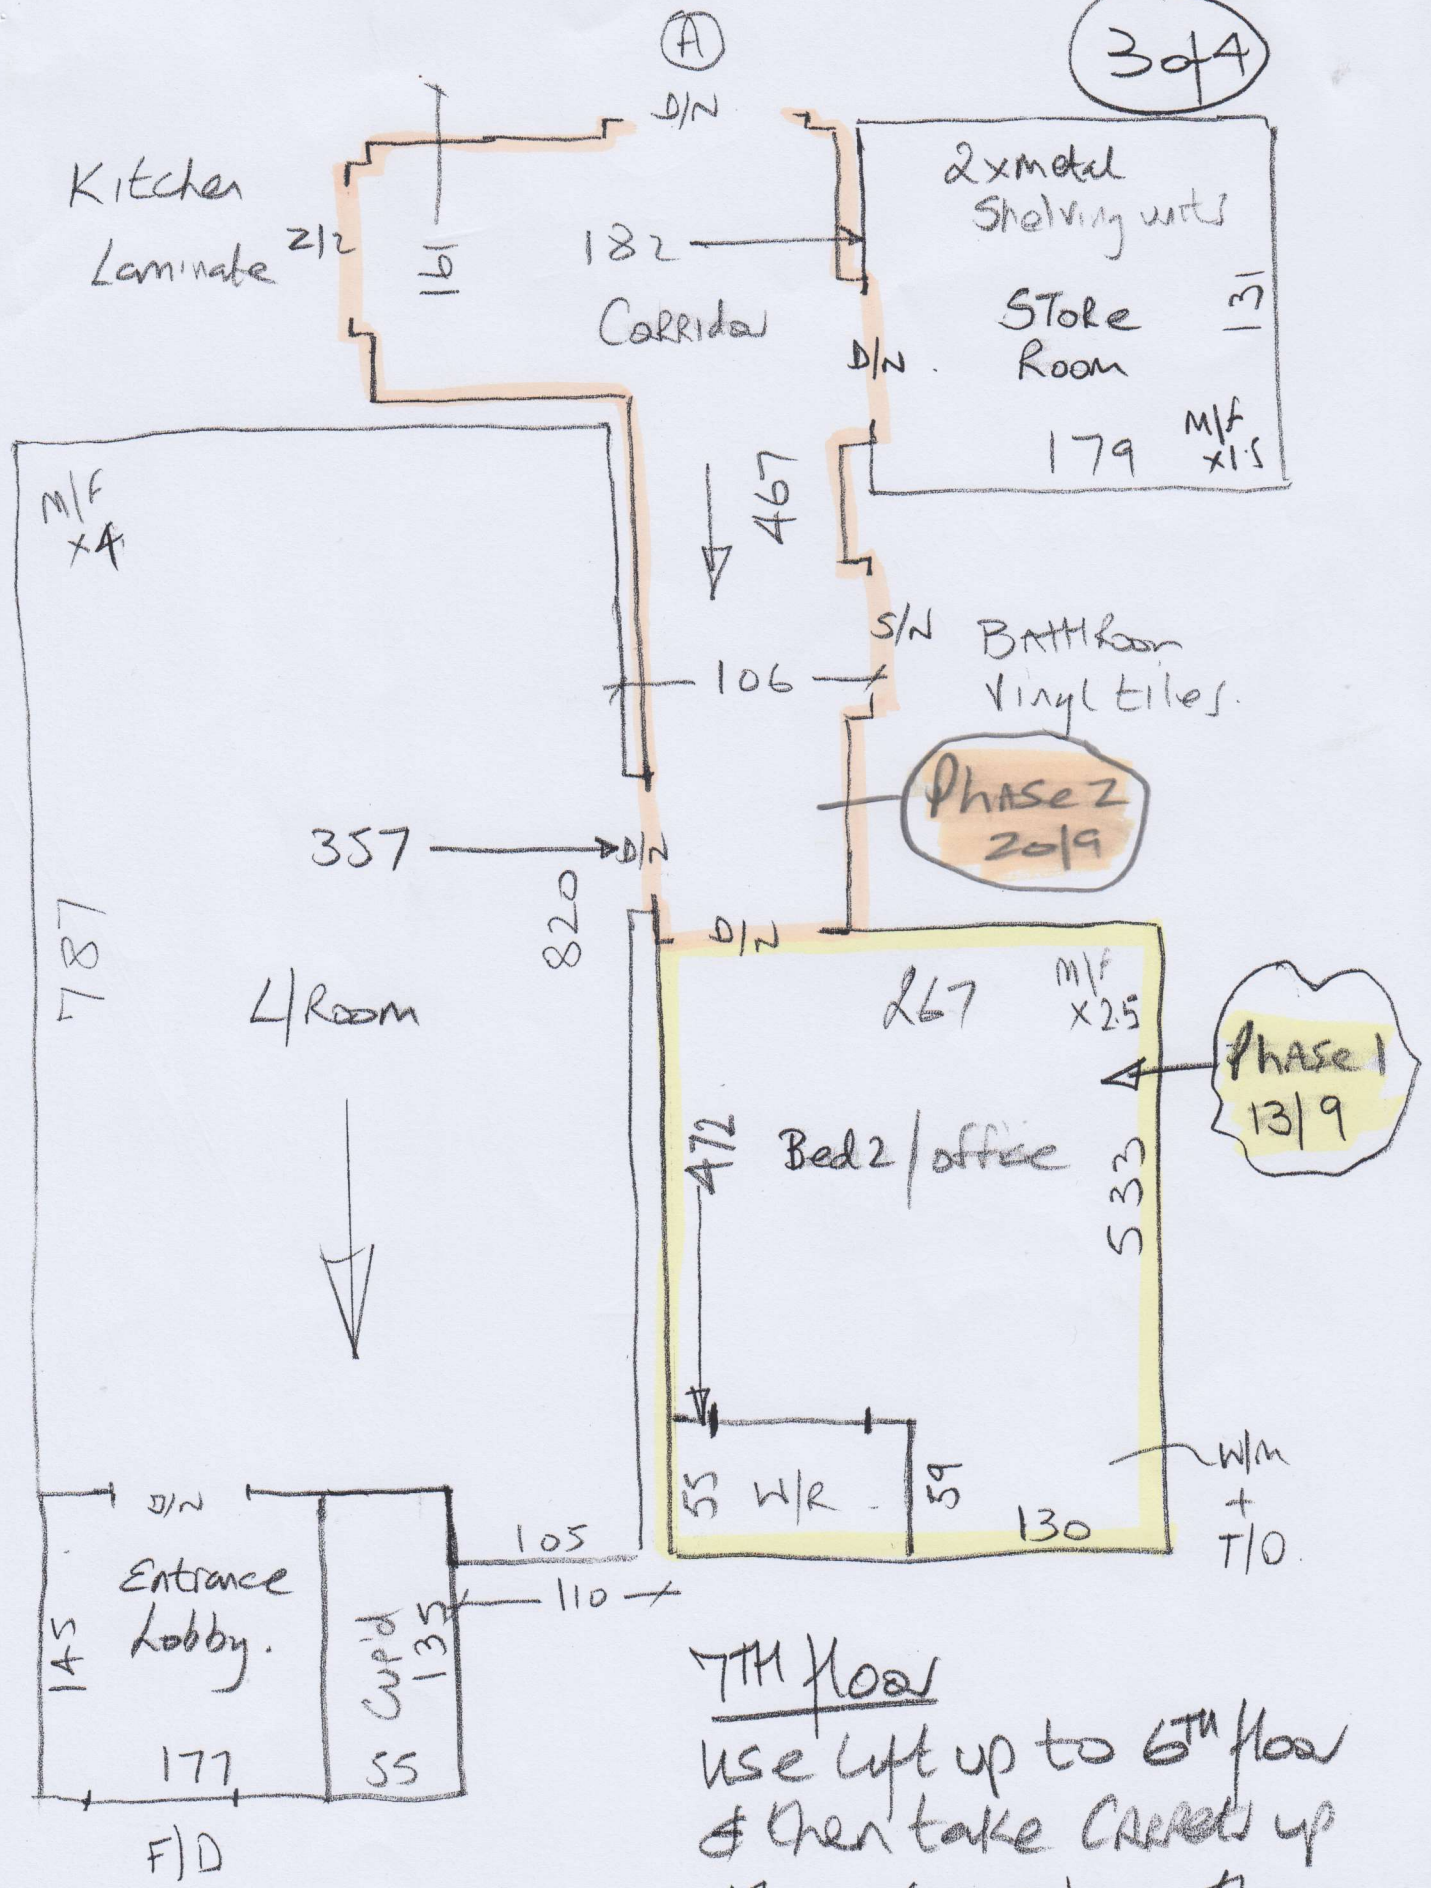 A
3of4
D/N
Kitchen
Laminate
212
161
182
Corridor
2xmetal
Shelving units
Store
Room
131
D/N.
179
M/F
x1.5
M/F
x4
467
S/N
Bathroom
Vinyl tiles.
106
Phase 2
20/9
357
D/N
820
787
L/Room
D/N
267
M/F
x 2.5
Phase 1
13/9
472
Bed 2/office
533
55
W/R
59
130
W/M
+
T/O.
D/N
105
110
Entrance
Lobby.
145
Cup'd
135
177
55
F/D
7TH floor
use lift up to 6TH floor
& then take Carpets up